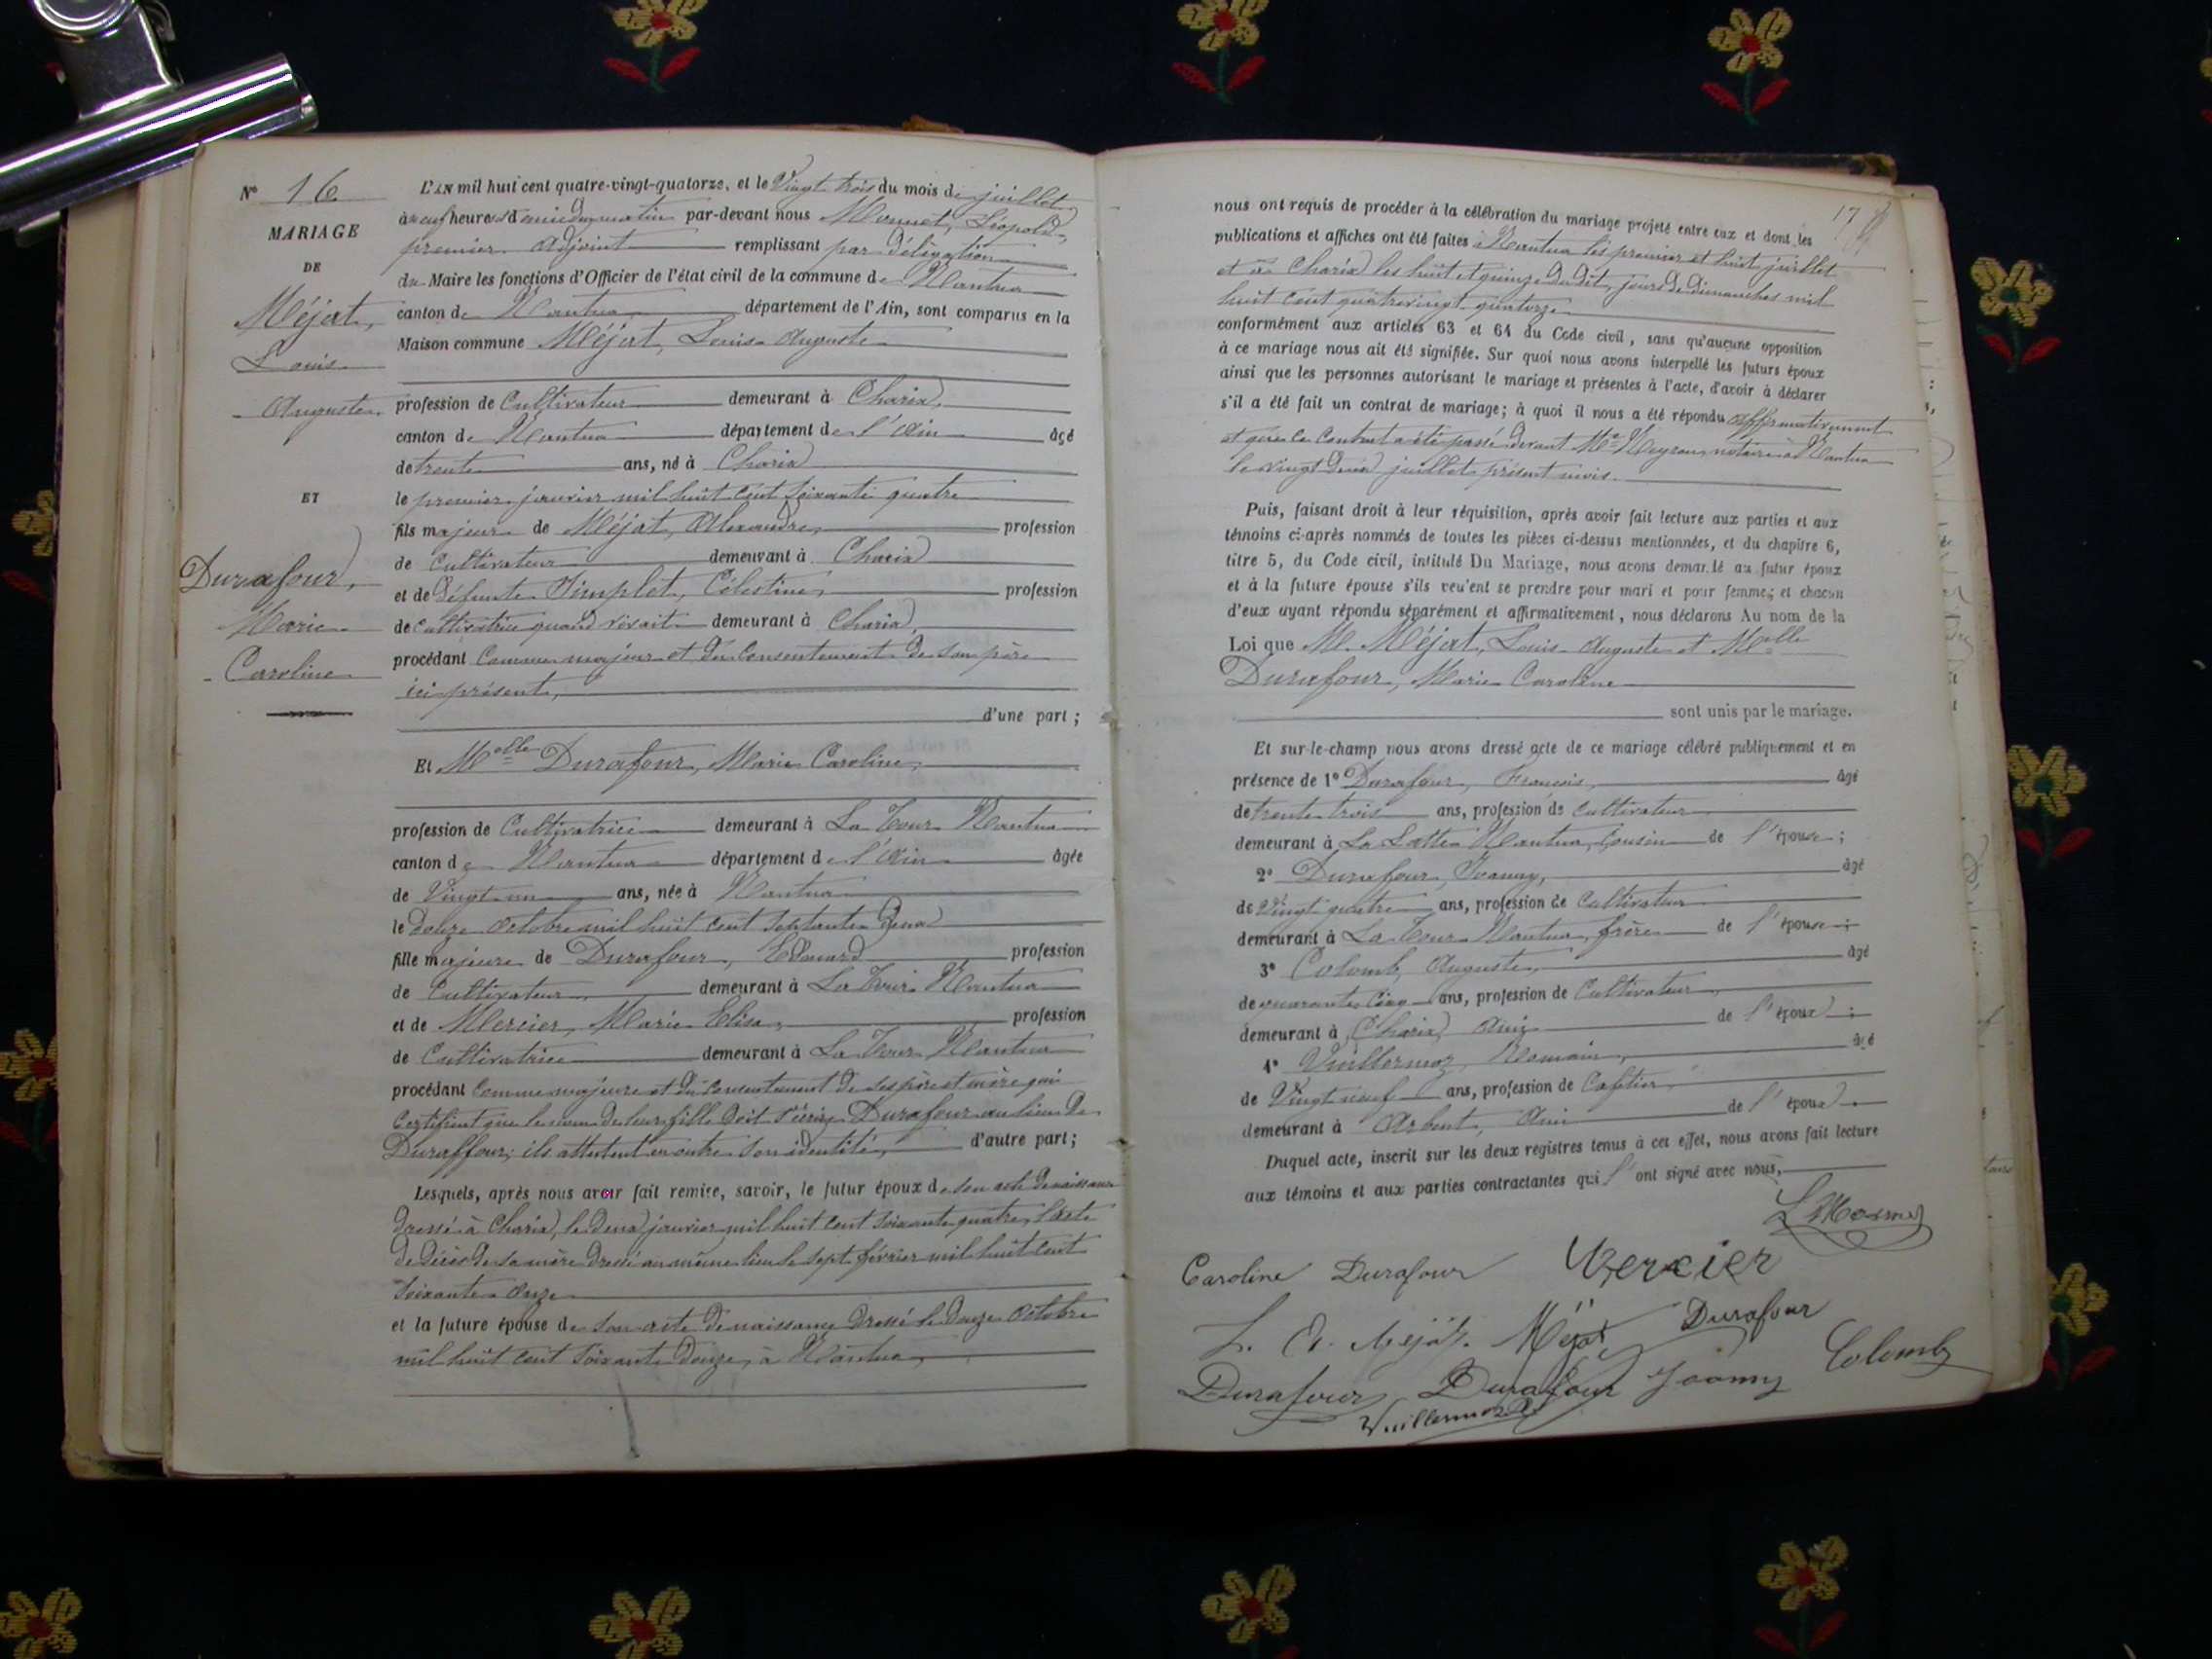 N° 16
MARIAGE
DE
Méjat,
Louis
Auguste
ET
Durafour,
Marie
Caroline
L'AN mil huit cent quatre-vingt-quatorze, et le Vingt trois du mois de juillet
à neuf heures du matin par-devant nous Monnet, Léopold,
premier adjoint remplissant par délégation
du Maire les fonctions d'Officier de l'état civil de la commune de Nantua
canton de Nantua département de l'Ain, sont comparus en la
Maison commune Méjat, Louis Auguste
profession de Cultivateur demeurant à Charix,
canton de Nantua département de l'Ain âgé
de trente ans, né à Charix
le premier janvier mil huit cent soixante quatre
fils majeur de Méjat, Alexandre, profession
de cultivateur demeurant à Charix
et de défunte Célestine, profession
de cultivatrice quand vivait demeurant à Charix,
procédant comme majeur et du consentement de son père
ici présent,
d'une part;
Et Melle Durafour, Marie Caroline,
profession de Cultivatrice demeurant à La Tour Nantua
canton de Nantua département de l'Ain âgée
de Vingt-un ans, née à Nantua
le douze octobre mil huit cent septante deux
fille majeure de Durafour, Edouard profession
de Cultivateur demeurant à La Tour Nantua
et de Mercier, Marie Elisa, profession
de Cultivatrice demeurant à La Tour Nantua
procédant comme majeure et du consentement de ses père et mère qui
certifient que le nom de leur fille doit s'écrire Durafour au lieu de
Duraffour; ils attestent en outre son identité, d'autre part;
Lesquels, après nous avoir fait remise, savoir, le futur époux de son acte de naissance
dressé à Charix, le deux janvier mil huit cent soixante quatre, l'acte
de décès de sa mère dressé au même lieu le sept février mil huit cent
soixante onze
et la future épouse de son acte de naissance dressé le douze octobre
mil huit cent soixante douze, à Nantua,
17
nous ont requis de procéder à la célébration du mariage projeté entre eux et dont les
publications et affiches ont été faites à Nantua les premier et huit juillet
et à Charix les huit et quinze du dit, jours de dimanches mil
huit cent quatre vingt quatorze
conformément aux articles 63 et 64 du Code civil, sans qu'aucune opposition
à ce mariage nous ait été signifiée. Sur quoi nous avons interpellé les futurs époux
ainsi que les personnes autorisant le mariage et présentes à l'acte, d'avoir à déclarer
s'il a été fait un contrat de mariage; à quoi il nous a été répondu affirmativement
et que le contrat a été passé devant Me notaire à Nantua
le vingt deux juillet présent mois.
Puis, faisant droit à leur réquisition, après avoir fait lecture aux parties et aux
témoins ci-après nommés de toutes les pièces ci-dessus mentionnées, et du chapitre 6,
titre 5, du Code civil, intitulé Du Mariage, nous avons demandé au futur époux
et à la future épouse s'ils veulent se prendre pour mari et pour femme; et chacun
d'eux ayant répondu séparément et affirmativement, nous déclarons Au nom de la
Loi que M. Méjat, Louis Auguste et Melle
Durafour, Marie Caroline
sont unis par le mariage.
Et sur-le-champ nous avons dressé acte de ce mariage célébré publiquement et en
présence de 1° Durafour, François, âgé
de trente trois ans, profession de cultivateur
demeurant à Nantua, Cousin de l'épouse;
2° Durafour, Joanny, âgé
de Vingt quatre ans, profession de Cultivateur
demeurant à La Tour Nantua, frère de l'épouse;
3° Colomb, Auguste, âgé
de quarante cinq ans, profession de Cultivateur
demeurant à Charix, Ami de l'époux;
4° Vuillermoz, Romain, âgé
de Vingt neuf ans, profession de Cafetier,
demeurant à Arbent, Ami de l'époux.
Duquel acte, inscrit sur les deux registres tenus à cet effet, nous avons fait lecture
aux témoins et aux parties contractantes qui l'ont signé avec nous,
L Monnet
Caroline Durafour Mercier
L. A. Méjat. Méjat Durafour
Durafour Durafour Joanny Colomb
Vuillermoz R.